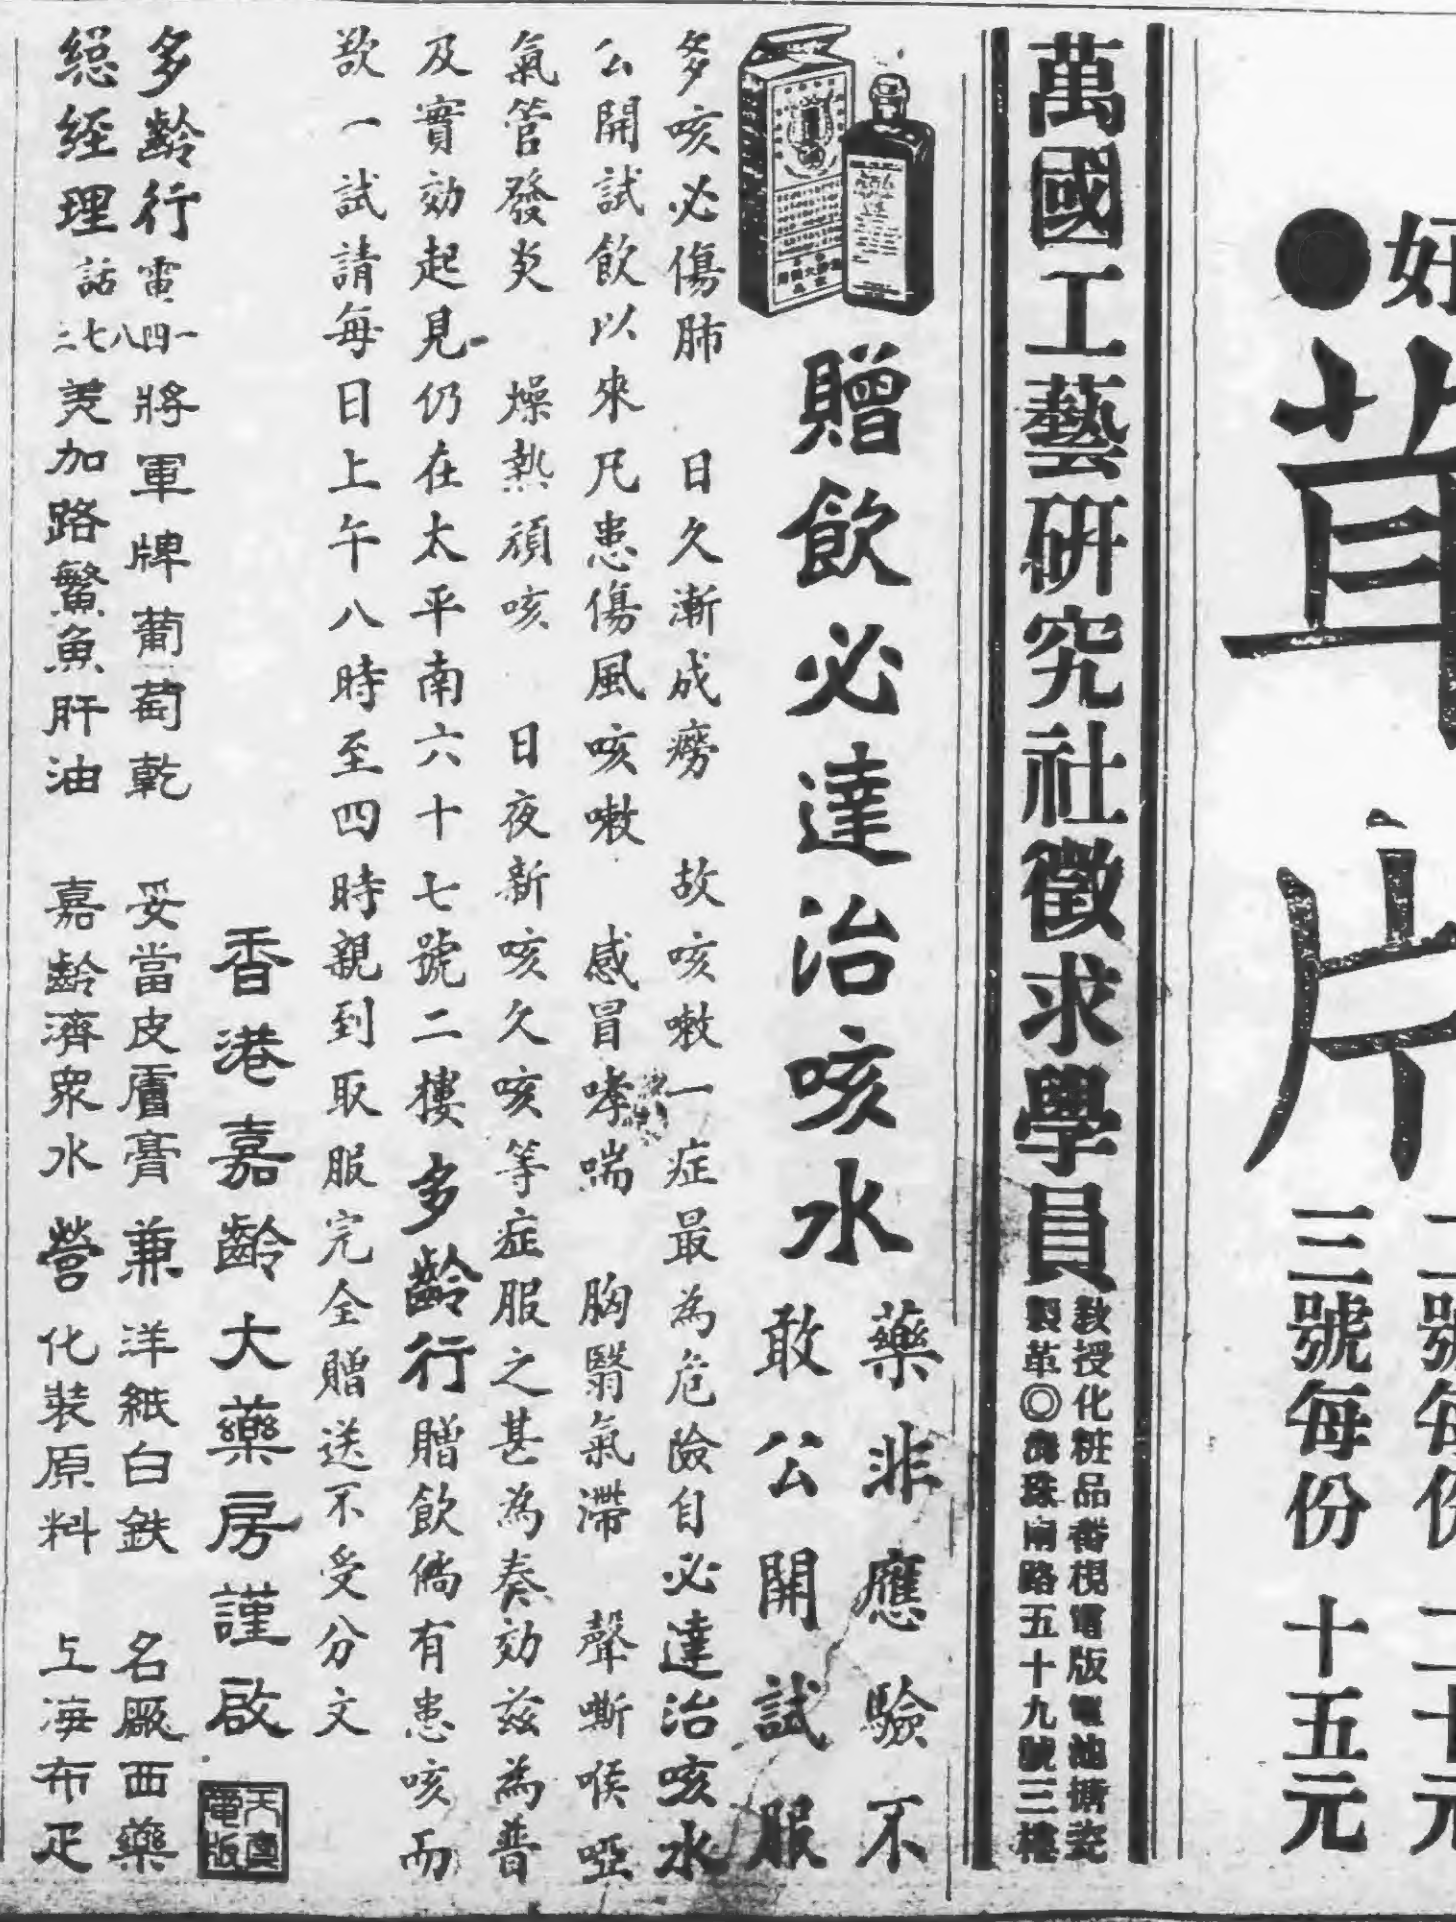 好
二號每份 二十元
片
三號每份 十五元
萬國工藝研究社徵求學員
教授化粧品番梘電版電池搪瓷
製革◎ 珠 路五十九號三樓
贈飲必達治咳水
藥非應驗不
敢公開試服
多咳必傷肺 日久漸成癆 故咳嗽一症最為危險自必達治咳水
公開試飲以來凡患傷風咳嗽 感冒哮喘 胸翳氣滯 聲嘶喉啞
氣管發炎 燥熱頑咳 日夜新咳久咳等症服之甚為奏効茲為普
及實効起見仍在太平南六十七號二樓多齡行贈飲倘有患咳而
欲一試請每日上午八時至四時親到取服完全贈送不受分文
香港嘉齡大藥房謹啟
天真
電版
多齡行電話一四八七二
將軍牌葡萄乾 妥當皮膚膏兼洋紙白鉄 名廠西藥
總經理
美加路鰵魚肝油 嘉齡濟眾水營化裝原料 上海布疋